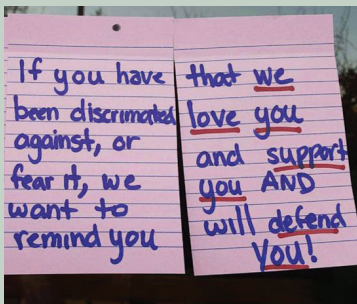 If you have
been discrimated
against, or
fear it, we
want to
remind you
that we
love you
and support
you AND
will defend
you!